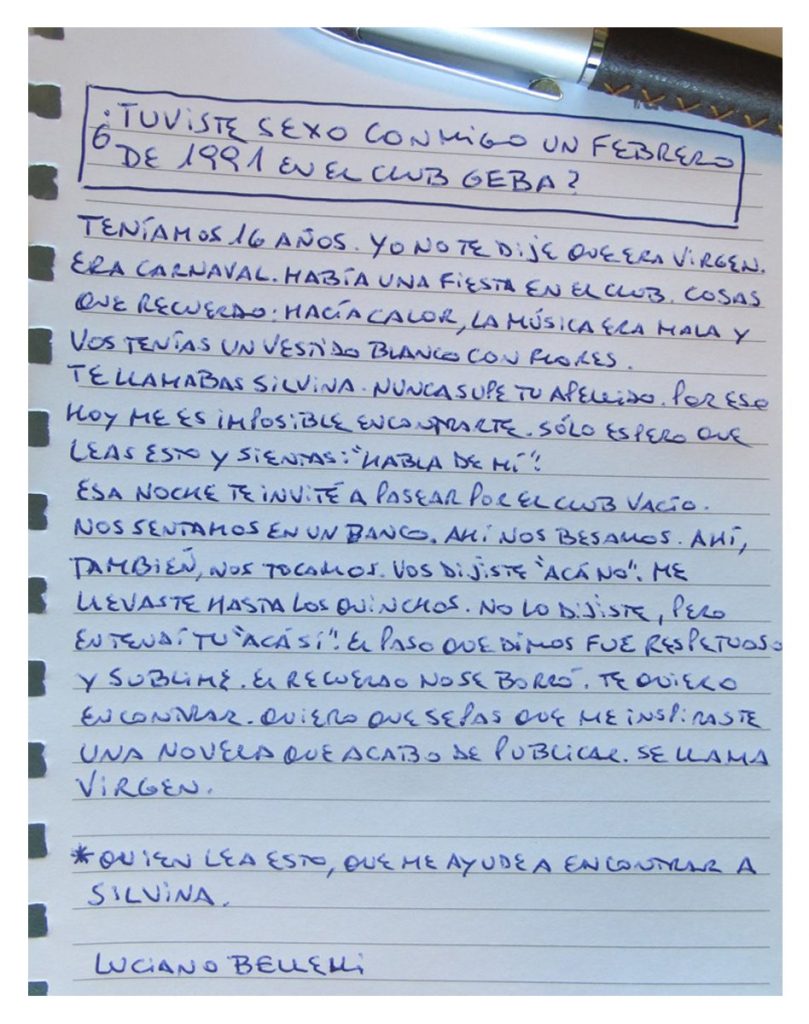 ¿TUVISTE SEXO CONMIGO UN FEBRERO
DE 1991 EN EL CLUB GEBA?
TENÍAMOS 16 AÑOS. YO NO TE DIJE QUE ERA VIRGEN.
ERA CARNAVAL. HABÍA UNA FIESTA EN EL CLUB. COSAS
QUE RECUERDO: HACÍA CALOR, LA MÚSICA ERA MALA Y
VOS TENÍAS UN VESTIDO BLANCO CON FLORES.
TE LLAMABAS SILVINA. NUNCA SUPE TU APELLIDO. POR ESO
HOY ME ES IMPOSIBLE ENCONTRARTE. SÓLO ESPERO QUE
LEAS ESTO Y SIENTAS: "HABLA DE MÍ".
ESA NOCHE TE INVITÉ A PASEAR POR EL CLUB VACÍO.
NOS SENTAMOS EN UN BANCO. AHÍ NOS BESAMOS. AHÍ,
TAMBIÉN, NOS TOCAMOS. VOS DIJISTE "ACÁ NO". ME
LLEVASTE HASTA LOS QUINCHOS. NO LO DIJISTE, PERO
ENTENDÍ TU "ACÁ SÍ". EL PASO QUE DIMOS FUE RESPETUOSO
Y SUBLIME. EL RECUERDO NO SE BORRÓ. TE QUIERO
ENCONTRAR. QUIERO QUE SEPAS QUE ME INSPIRASTE
UNA NOVELA QUE ACABO DE PUBLICAR. SE LLAMA
VIRGEN.
*QUIEN LEA ESTO, QUE ME AYUDE A ENCONTRAR A
SILVINA.
LUCIANO BELLELLI